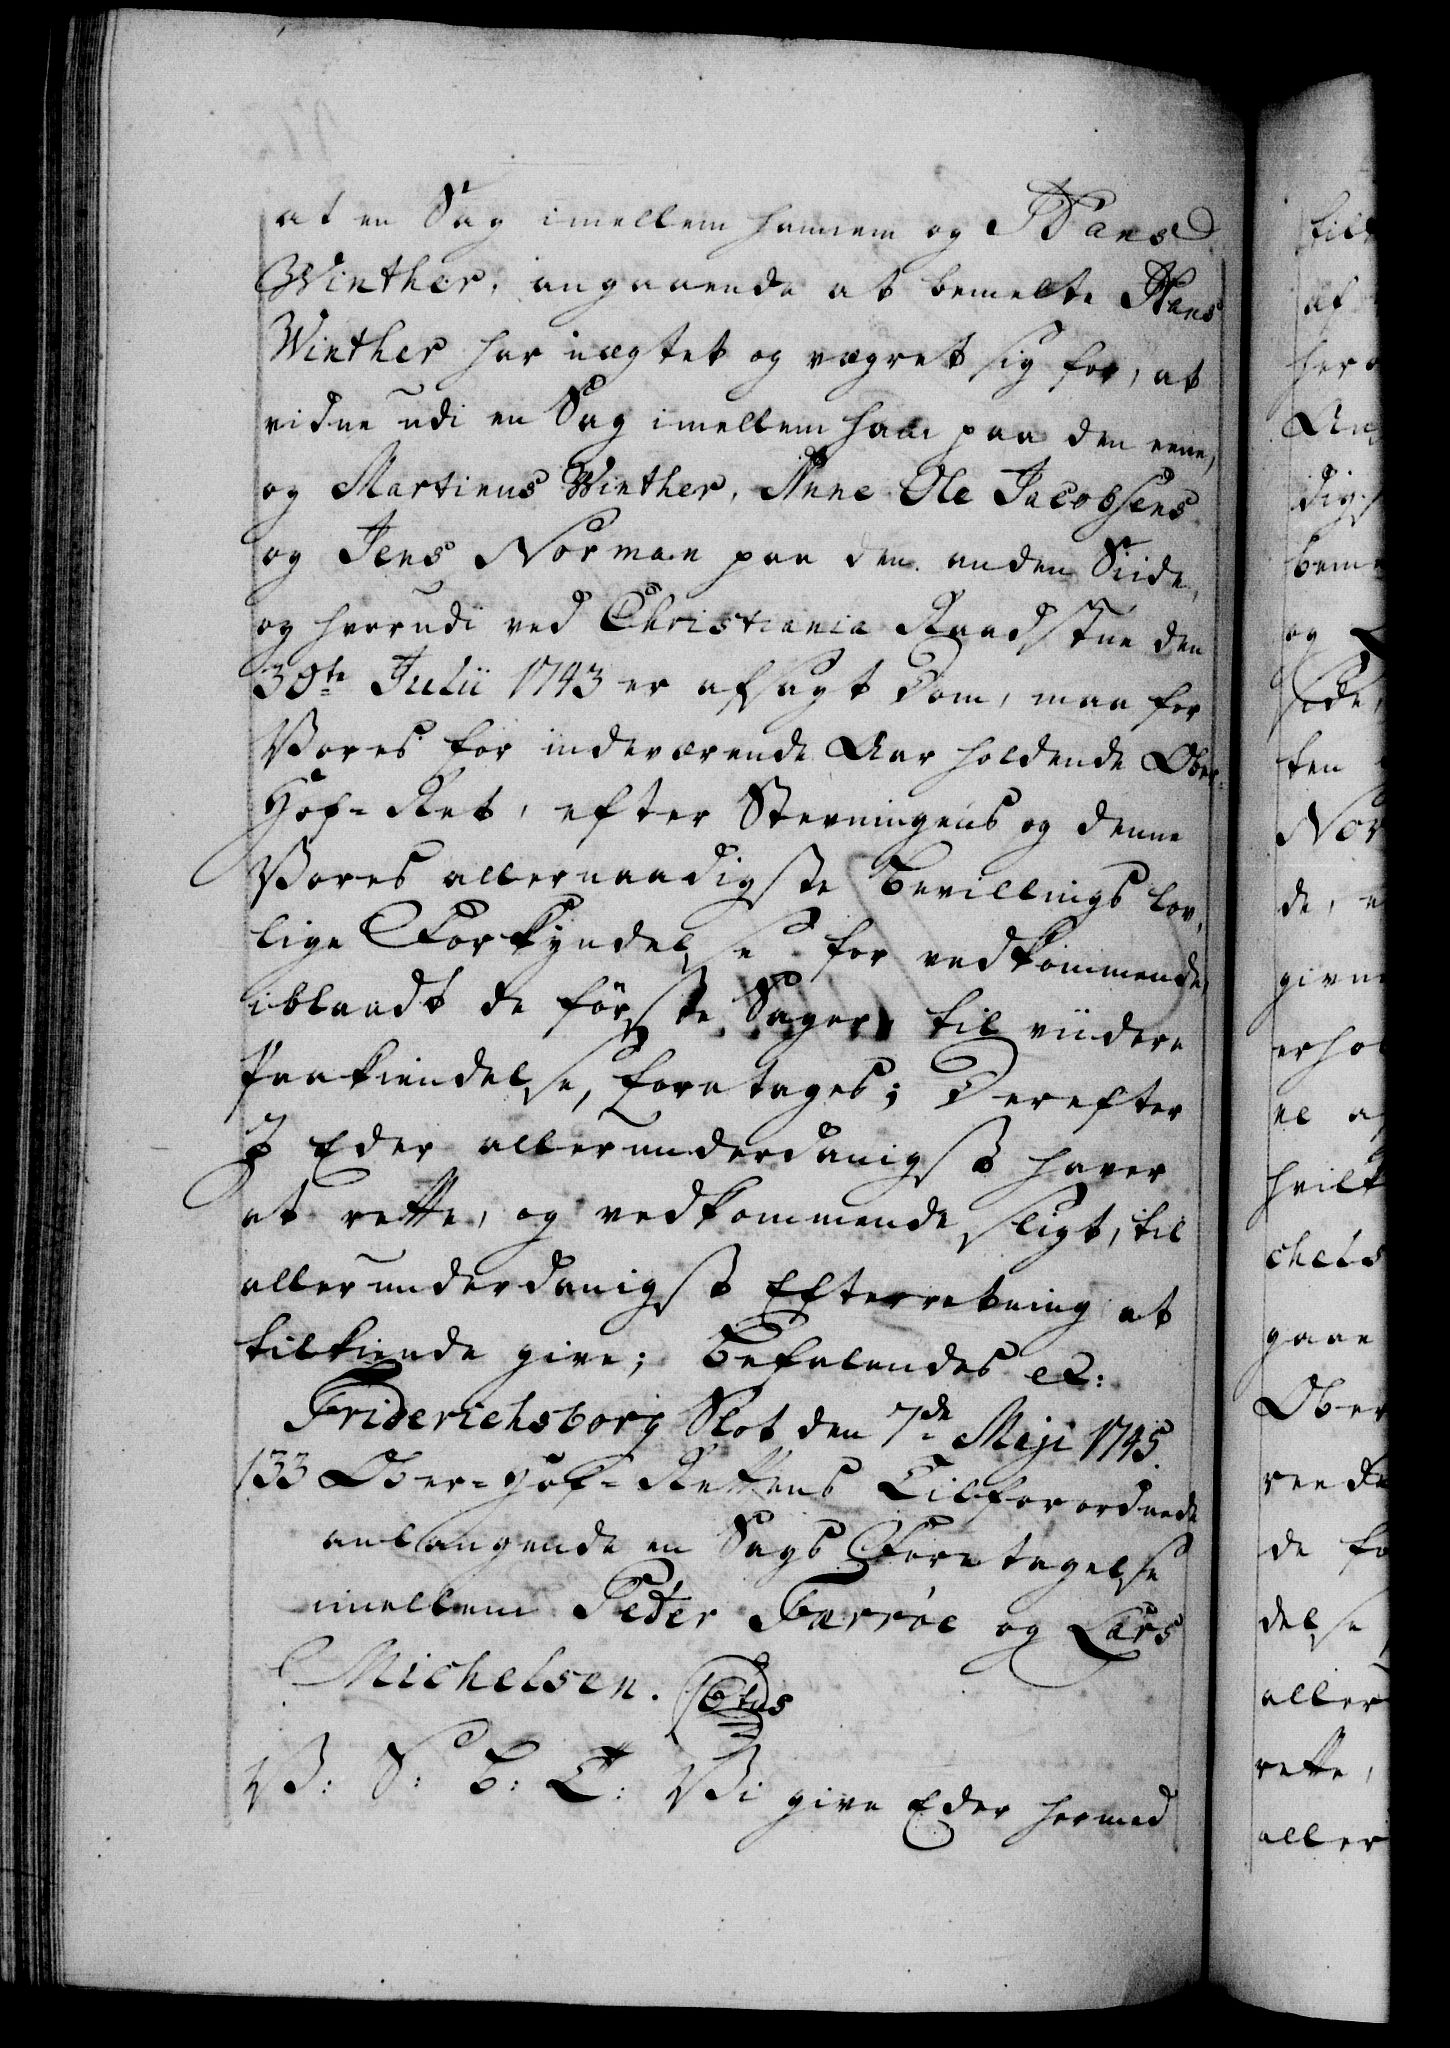 at en Sag imellem hannem og Hans
Winther, angaaende at bemelte Hans
Winther har nægtet og vægret sig for, at
vidne udi en Sag imellem ham paa den eene,
og Martinus Winther, Anne Ole Jacobsens
og Jens Norman paa den anden Siide,
og hvorudi ved Christiania Raadstue den
30te Julii 1743 er afsagt Dom, maa for
Vores for indeværende Aar holdende Ober-
Hof-Ret, efter Stevningens og denne
Vores allernaadigste Bevillings lov-
lige Forkyndelse for vedkommende,
iblandt de förste Sager, til viidere
Paakiendelse, foretages; Derefter
I Eder allerunderdanigst haver
at rette, og vedkommende sligt, til
allerunderdanigst Efterretning at
tilkiende give; Befalendes etc:
Friderichsborg Slot den 7de Maji 1745.
133 Ober-Hof-Rettens Tilforordnede
anlangende en Sags Foretagelse
imellem Peder Færröe og Lars
Michelsen.
V: S: B: T: Vi give Eder hermed
till
af
her
dig
bem
og
ten
Nor
de,
givne
erhol
el
hvilk
chels
gaae
Ober
de fo
delse
aller
rette,
aller